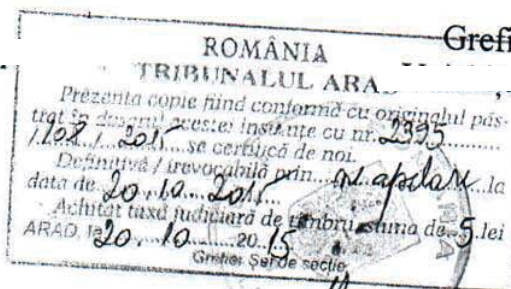 Grefi
ROMÂNIA
TRIBUNALUL ARAD
Prezenta copie fiind conformă cu originalul păs-
trat în dosarul acestei instanțe cu nr. 2395
/108/ 2015 se certifică de noi.
Definitivă / irevocabilă prin n. apelare la
data de 20.10.2015
Achitat taxă judiciară de timbru suma de 5 lei
ARAD, la 20.10.2015
Grefier Șef de secție